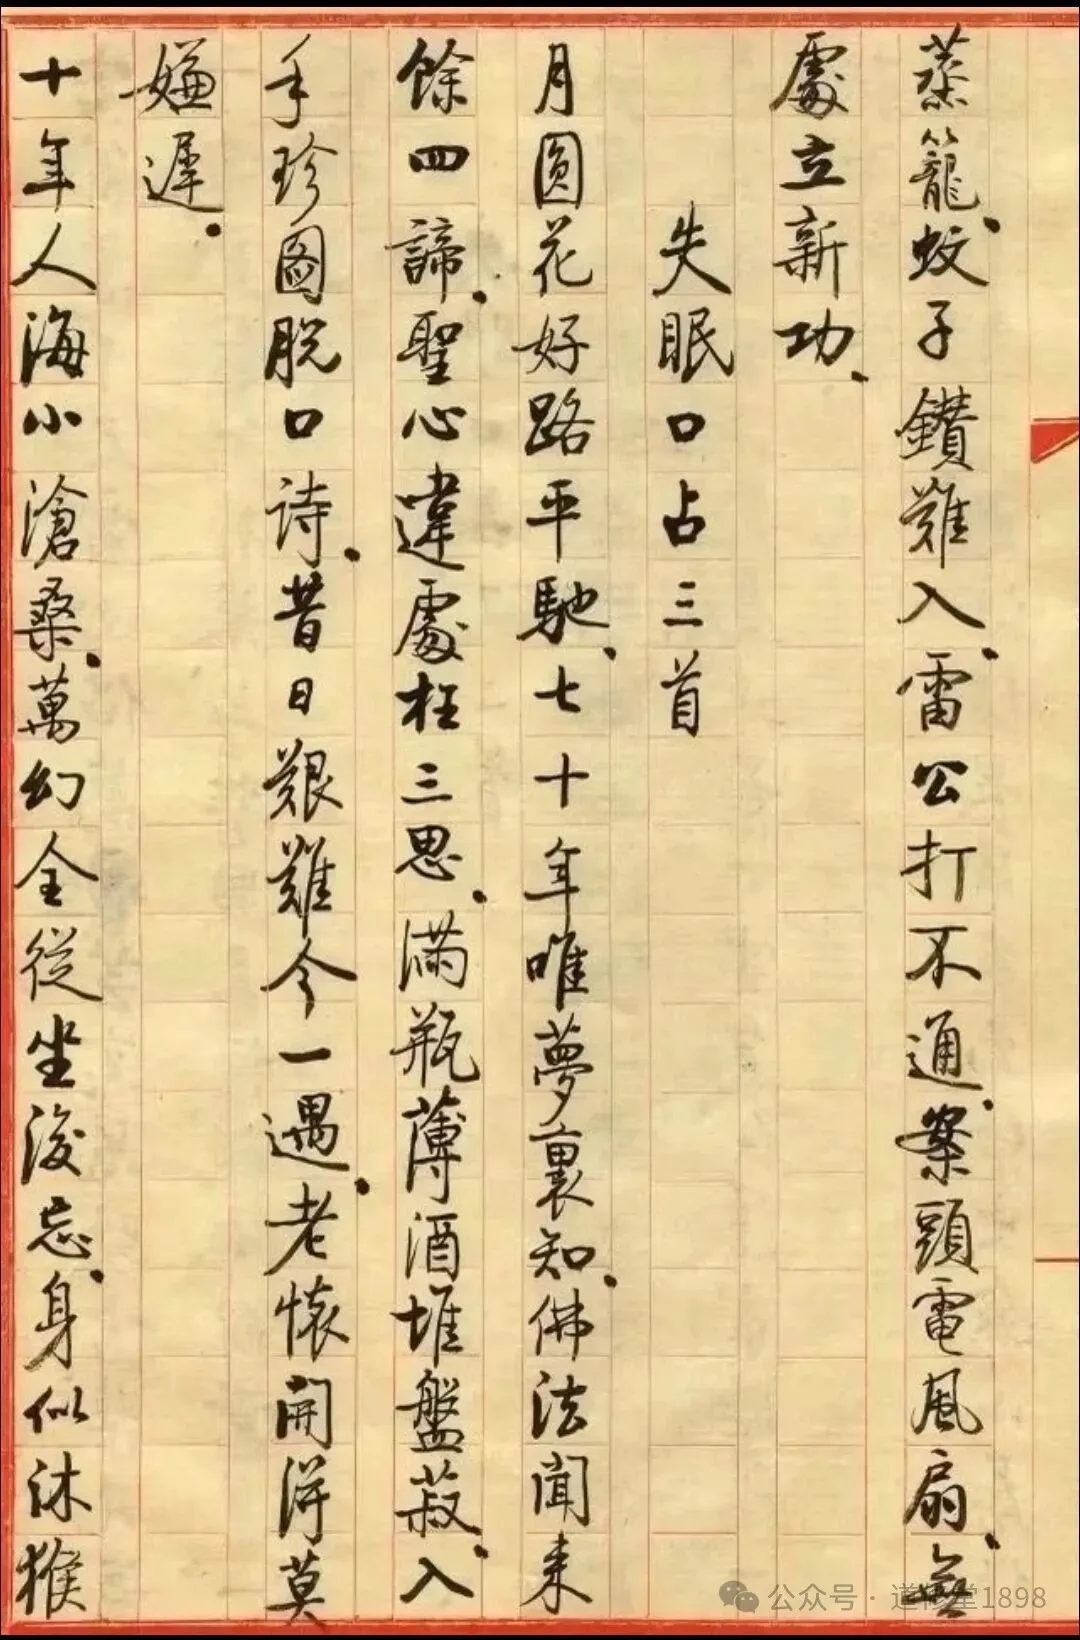 蒸籠蚊子鑽難入雷公打不通案頭電風扇無
處立新功
失眠口占三首
月圓花好路平馳七十年唯夢裏知佛法聞来
餘四諦聖心違處枉三思滿瓶薄酒堆盤菽入
手珍圖脱口诗昔日艱難今一遇老懷開得莫
嫌遲
十年人海小滄桑萬幻全從坐後忘身似沐猴
公众号·道1898